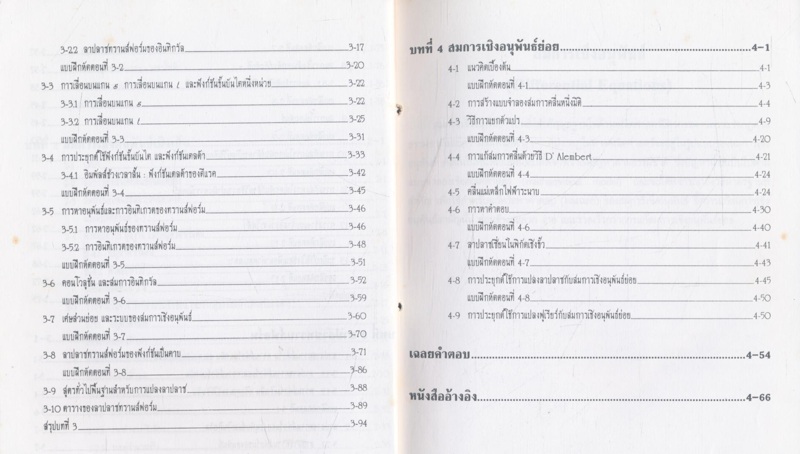 3-2.2 ลาปลาซทรานส์ฟอร์มของอินทิกรัล 3-17
แบบฝึกหัดตอนที่ 3-2 3-20
3-3 การเลื่อนบนแกน s การเลื่อนบนแกน t และฟังก์ชันขั้นบันไดหนึ่งหน่วย 3-22
3-3.1 การเลื่อนบนแกน s 3-22
3-3.2 การเลื่อนบนแกน t 3-25
แบบฝึกหัดตอนที่ 3-3 3-31
3-4 การประยุกต์ใช้ฟังก์ชันขั้นบันได และฟังก์ชันเดลต้า 3-33
3-4.1 อิมพัลส์ช่วงเวลาสั้น : ฟังก์ชันเดลต้าของดิแรค 3-42
แบบฝึกหัดตอนที่ 3-4 3-45
3-5 การหาอนุพันธ์และการอินทิเกรตของทรานส์ฟอร์ม 3-46
3-5.1 การหาอนุพันธ์ของทรานส์ฟอร์ม 3-46
3-5.2 การอินทิเกรตของทรานส์ฟอร์ม 3-48
แบบฝึกหัดตอนที่ 3-5 3-51
3-6 คอนโวลูชั่น และสมการอินทิกรัล 3-52
แบบฝึกหัดตอนที่ 3-6 3-59
3-7 เศษส่วนย่อย และระบบของสมการเชิงอนุพันธ์ 3-60
แบบฝึกหัดตอนที่ 3-7 3-70
3-8 ลาปลาซทรานส์ฟอร์มของฟังก์ชันเป็นคาบ 3-71
แบบฝึกหัดตอนที่ 3-8 3-86
3-9 สูตรทั่วไปพื้นฐานสำหรับการแปลงลาปลาซ 3-88
3-10 ตารางของลาปลาซทรานส์ฟอร์ม 3-89
สรุปบทที่ 3 3-94
บทที่ 4 สมการเชิงอนุพันธ์ย่อย 4-1
4-1 แนวคิดเบื้องต้น 4-1
แบบฝึกหัดตอนที่ 4-1 4-3
4-2 การสร้างแบบจำลองสมการคลื่นหนึ่งมิติ 4-4
4-3 วิธีการแยกตัวแปร 4-9
แบบฝึกหัดตอนที่ 4-3 4-20
4-4 การแก้สมการคลื่นด้วยวิธี D' Alembert 4-21
แบบฝึกหัดตอนที่ 4-4 4-24
4-5 คลื่นแม่เหล็กไฟฟ้าระนาบ 4-24
4-6 การหาคำตอบ 4-30
แบบฝึกหัดตอนที่ 4-6 4-40
4-7 ลาปลาซเชียนในพิกัดเชิงขั้ว 4-41
แบบฝึกหัดตอนที่ 4-7 4-43
4-8 การประยุกต์ใช้การแปลงลาปลาซกับสมการเชิงอนุพันธ์ย่อย 4-45
แบบฝึกหัดตอนที่ 4-8 4-50
4-9 การประยุกต์ใช้การแปลงฟูเรียร์กับสมการเชิงอนุพันธ์ย่อย 4-50
เฉลยคำตอบ 4-54
หนังสืออ้างอิง 4-66